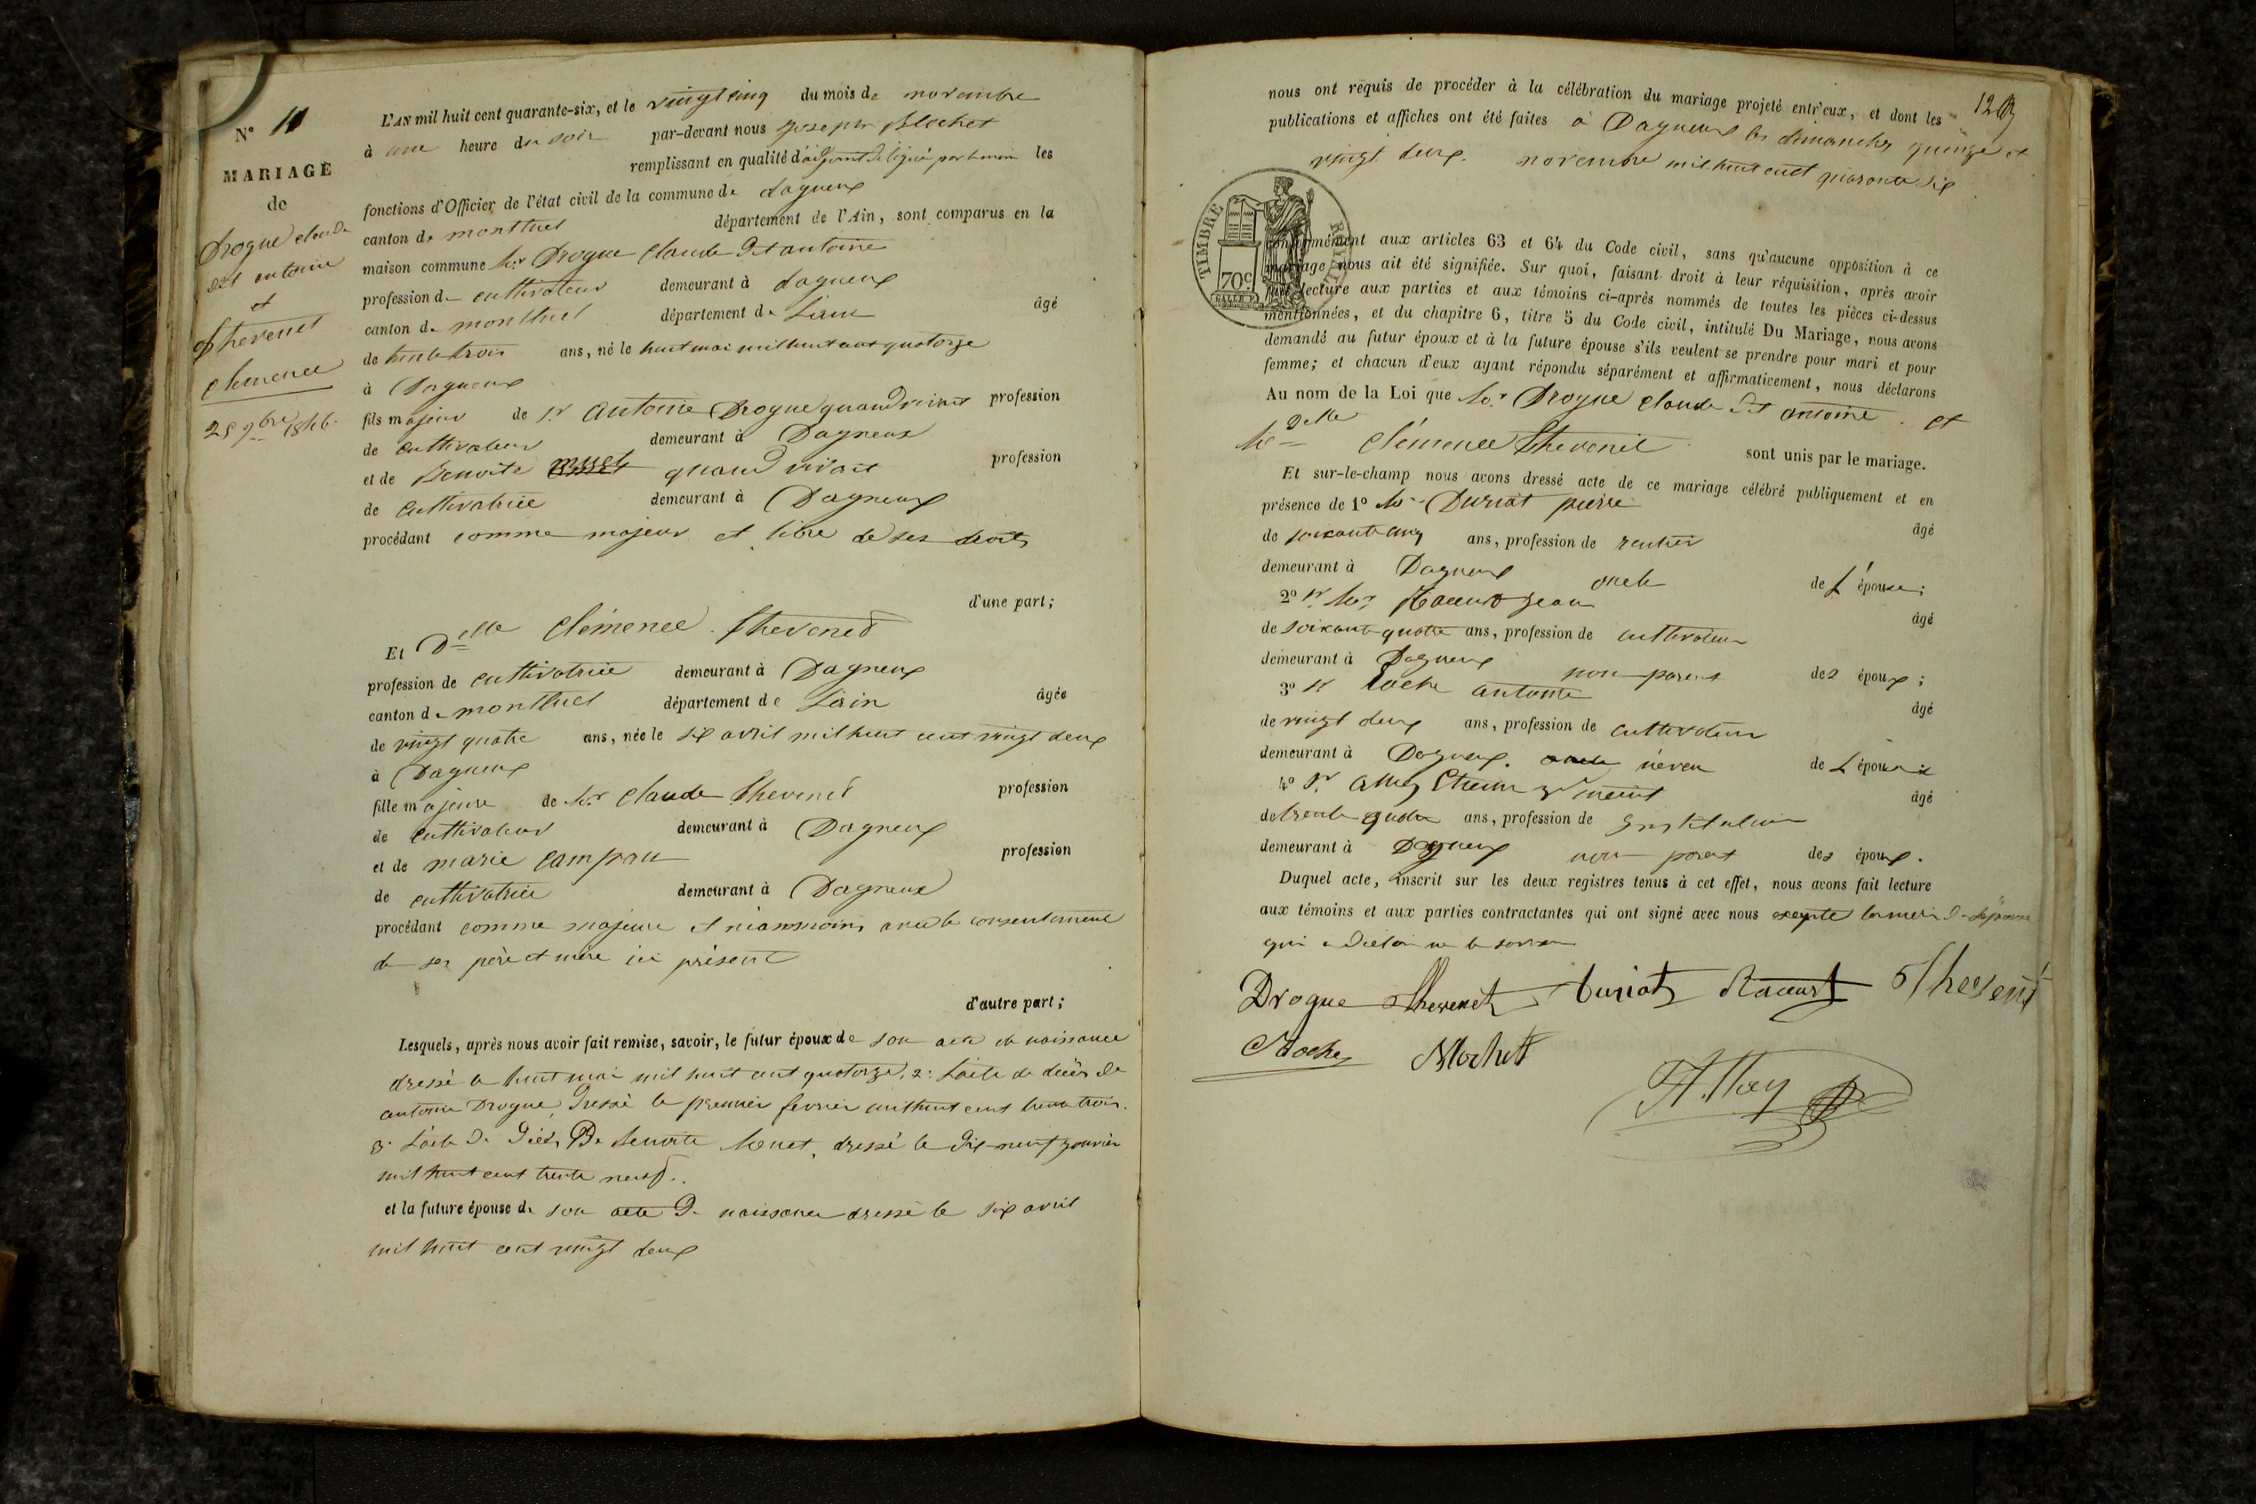 N° 11
MARIAGE
de
Drogue Claude
dit antoine
et
Thevenet
Clemence
25 9bre 1846.
L'AN mil huit cent quarante-six, et le vingt cinq du mois de novembre
à une heure du soir par-devant nous Joseph Blochet
remplissant en qualité d'adjoint délégué par le maire les
fonctions d'Officier de l'état civil de la commune de dagneux
canton de montluel département de l'Ain, sont comparus en la
maison commune Mr Drogue Claude dit antoine
profession de cultivateur demeurant à dagneux
canton de montluel département de L'ain âgé
de trente trois ans, né le huit mai mil huit cent quatorze
à Dagneux
fils majeur de Sr antoine Drogue quand vivait profession
de cultivateur demeurant à Dagneux
et de Benoite quand vivait profession
de cultivatrice demeurant à Dagneux
procédant comme majeur et libre de ses droits
d'une part;
Et Delle Clémence Thevenet
profession de cultivatrice demeurant à Dagneux
canton de montluel département de L'ain âgée
de vingt quatre ans, née le six avril mil huit cent vingt deux
à Dagneux
fille majeure de Mr Claude Thevenet profession
de cultivateur demeurant à Dagneux
et de marie campan profession
de cultivatrice demeurant à Dagneux
procédant comme majeure et néanmoins avec le consentement
de ses père et mère ici présent
d'autre part;
Lesquels, après nous avoir fait remise, savoir, le futur époux de son acte de naissance
dressé le huit mai mil huit cent quatorze, 2° L'acte de décès de
antoine Drogue, dressé le premier fevrier mil huit cent trente trois.
3° L'acte de décès De Benoite, dressé le dix-neuf janvier
mil huit cent trente neuf.
et la future épouse de son acte de naissance dressé le six avril
mil huit cent vingt deux
nous ont requis de procéder à la célébration du mariage projeté entr'eux, et dont les
publications et affiches ont été faites à Dagneux les dimanches quinze et
vingt deux novembre mil huit cent quarante six
TIMBRE ROYAL
70c
conformément aux articles 63 et 64 du Code civil, sans qu'aucune opposition à ce
mariage nous ait été signifiée. Sur quoi, faisant droit à leur réquisition, après avoir
fait lecture aux parties et aux témoins ci-après nommés de toutes les pièces ci-dessus
mentionnées, et du chapitre 6, titre 5 du Code civil, intitulé Du Mariage, nous avons
demandé au futur époux et à la future épouse s'ils veulent se prendre pour mari et pour
femme; et chacun d'eux ayant répondu séparément et affirmativement, nous déclarons
Au nom de la Loi que Mr Drogue Claude dit antoine et
Delle Clémence Thevenet sont unis par le mariage.
Et sur-le-champ nous avons dressé acte de ce mariage célébré publiquement et en
présence de 1° Mr Duriat pierre âgé
de soixante cinq ans, profession de rentier
demeurant à Dagneux oncle de L'épouse;
2° Sr Racurt Jean âgé
de soixante quatre ans, profession de cultivateur
demeurant à Dagneux non parent des époux;
3° Sr Roche antoine âgé
de vingt deux ans, profession de cultivateur
demeurant à Dagneux. neveu de L'époux
4° Sr âgé
de trente quatre ans, profession de Instituteur
demeurant à Dagneux non parent des époux.
Duquel acte, inscrit sur les deux registres tenus à cet effet, nous avons fait lecture
aux témoins et aux parties contractantes qui ont signé avec nous excepté la mère de l'épouse
qui a déclaré ne le savoir
Drogue Thevenet Duriat Racurt Thevenet
Roche Blochet